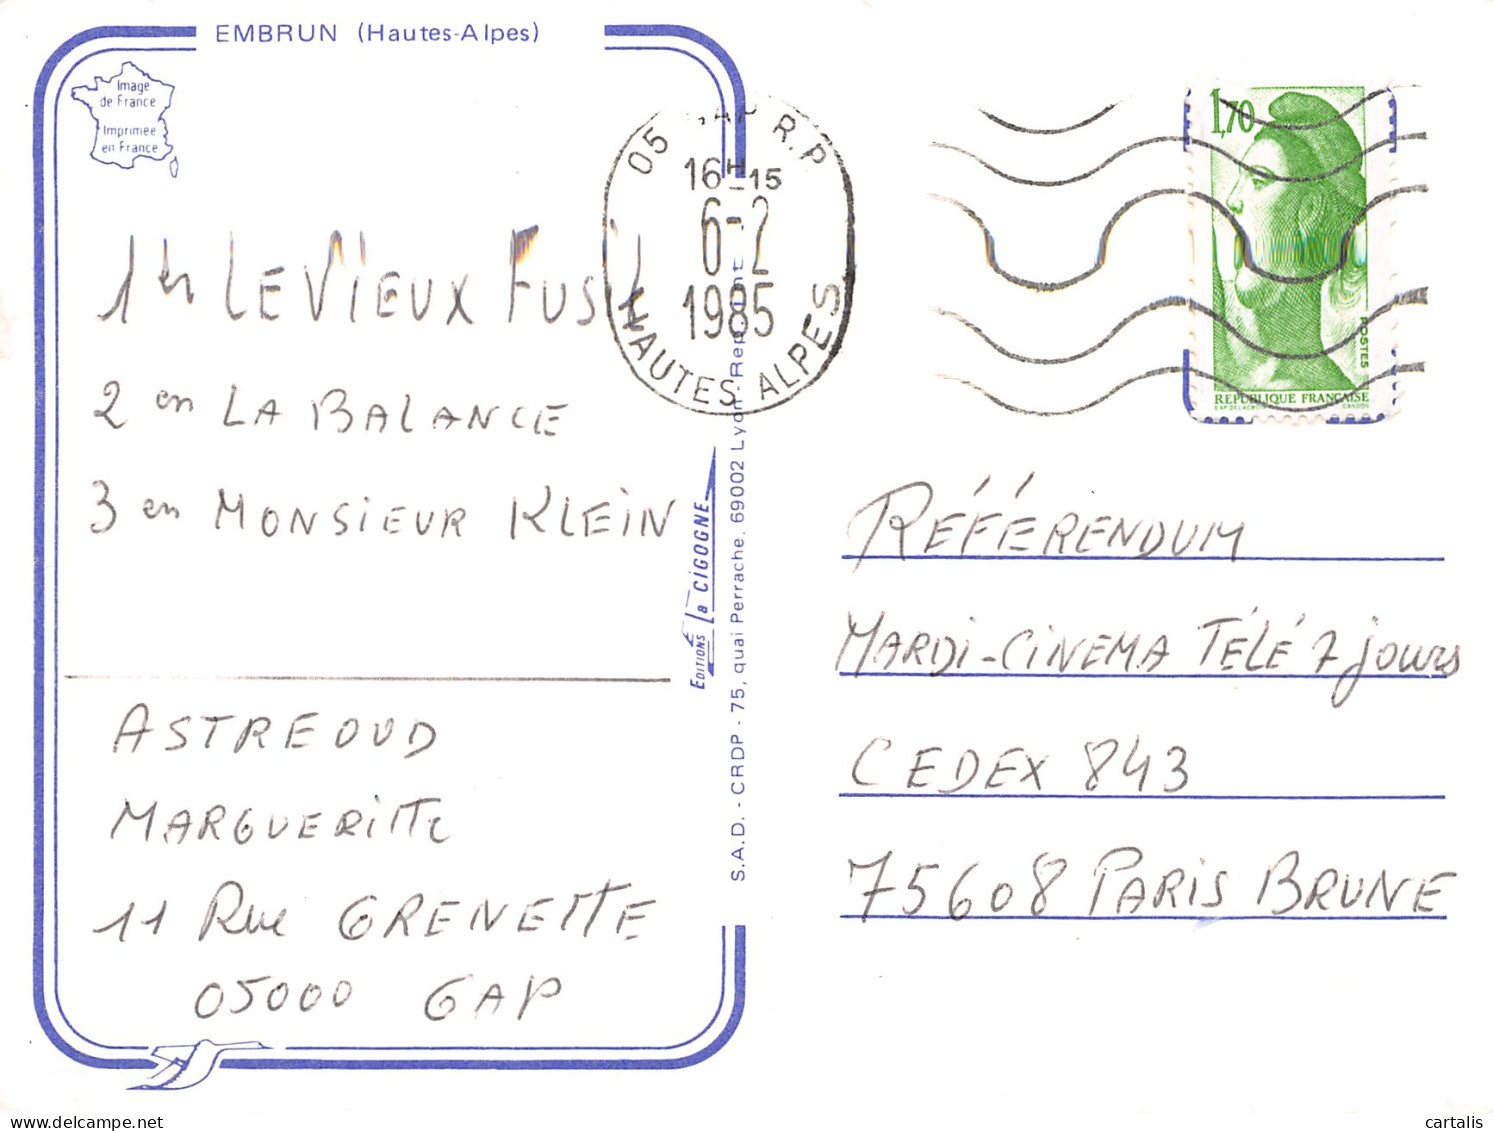 EMBRUN (Hautes-Alpes)
Image
de France
Imprimée
en France
1 en LE VIEUX FUSIL
2 en LA BALANCE
3 en MONSIEUR KLEIN
ASTREOUD
MARGUERITTE
11 Rue GRENETTE
05000 GAP
EDITIONS La CIGOGNE
S.A.D. - CRDP - 75, quai Perrache, 69002 Lyon
05 GAP R.P
16H15
6-2
1985
HAUTES ALPES
1,70
POSTES
REPUBLIQUE FRANÇAISE
GANDON
RÉFÉRENDUM
MARDI-CINEMA TÉLÉ 7 jours
CEDEX 843
75608 PARIS BRUNE
cartalis